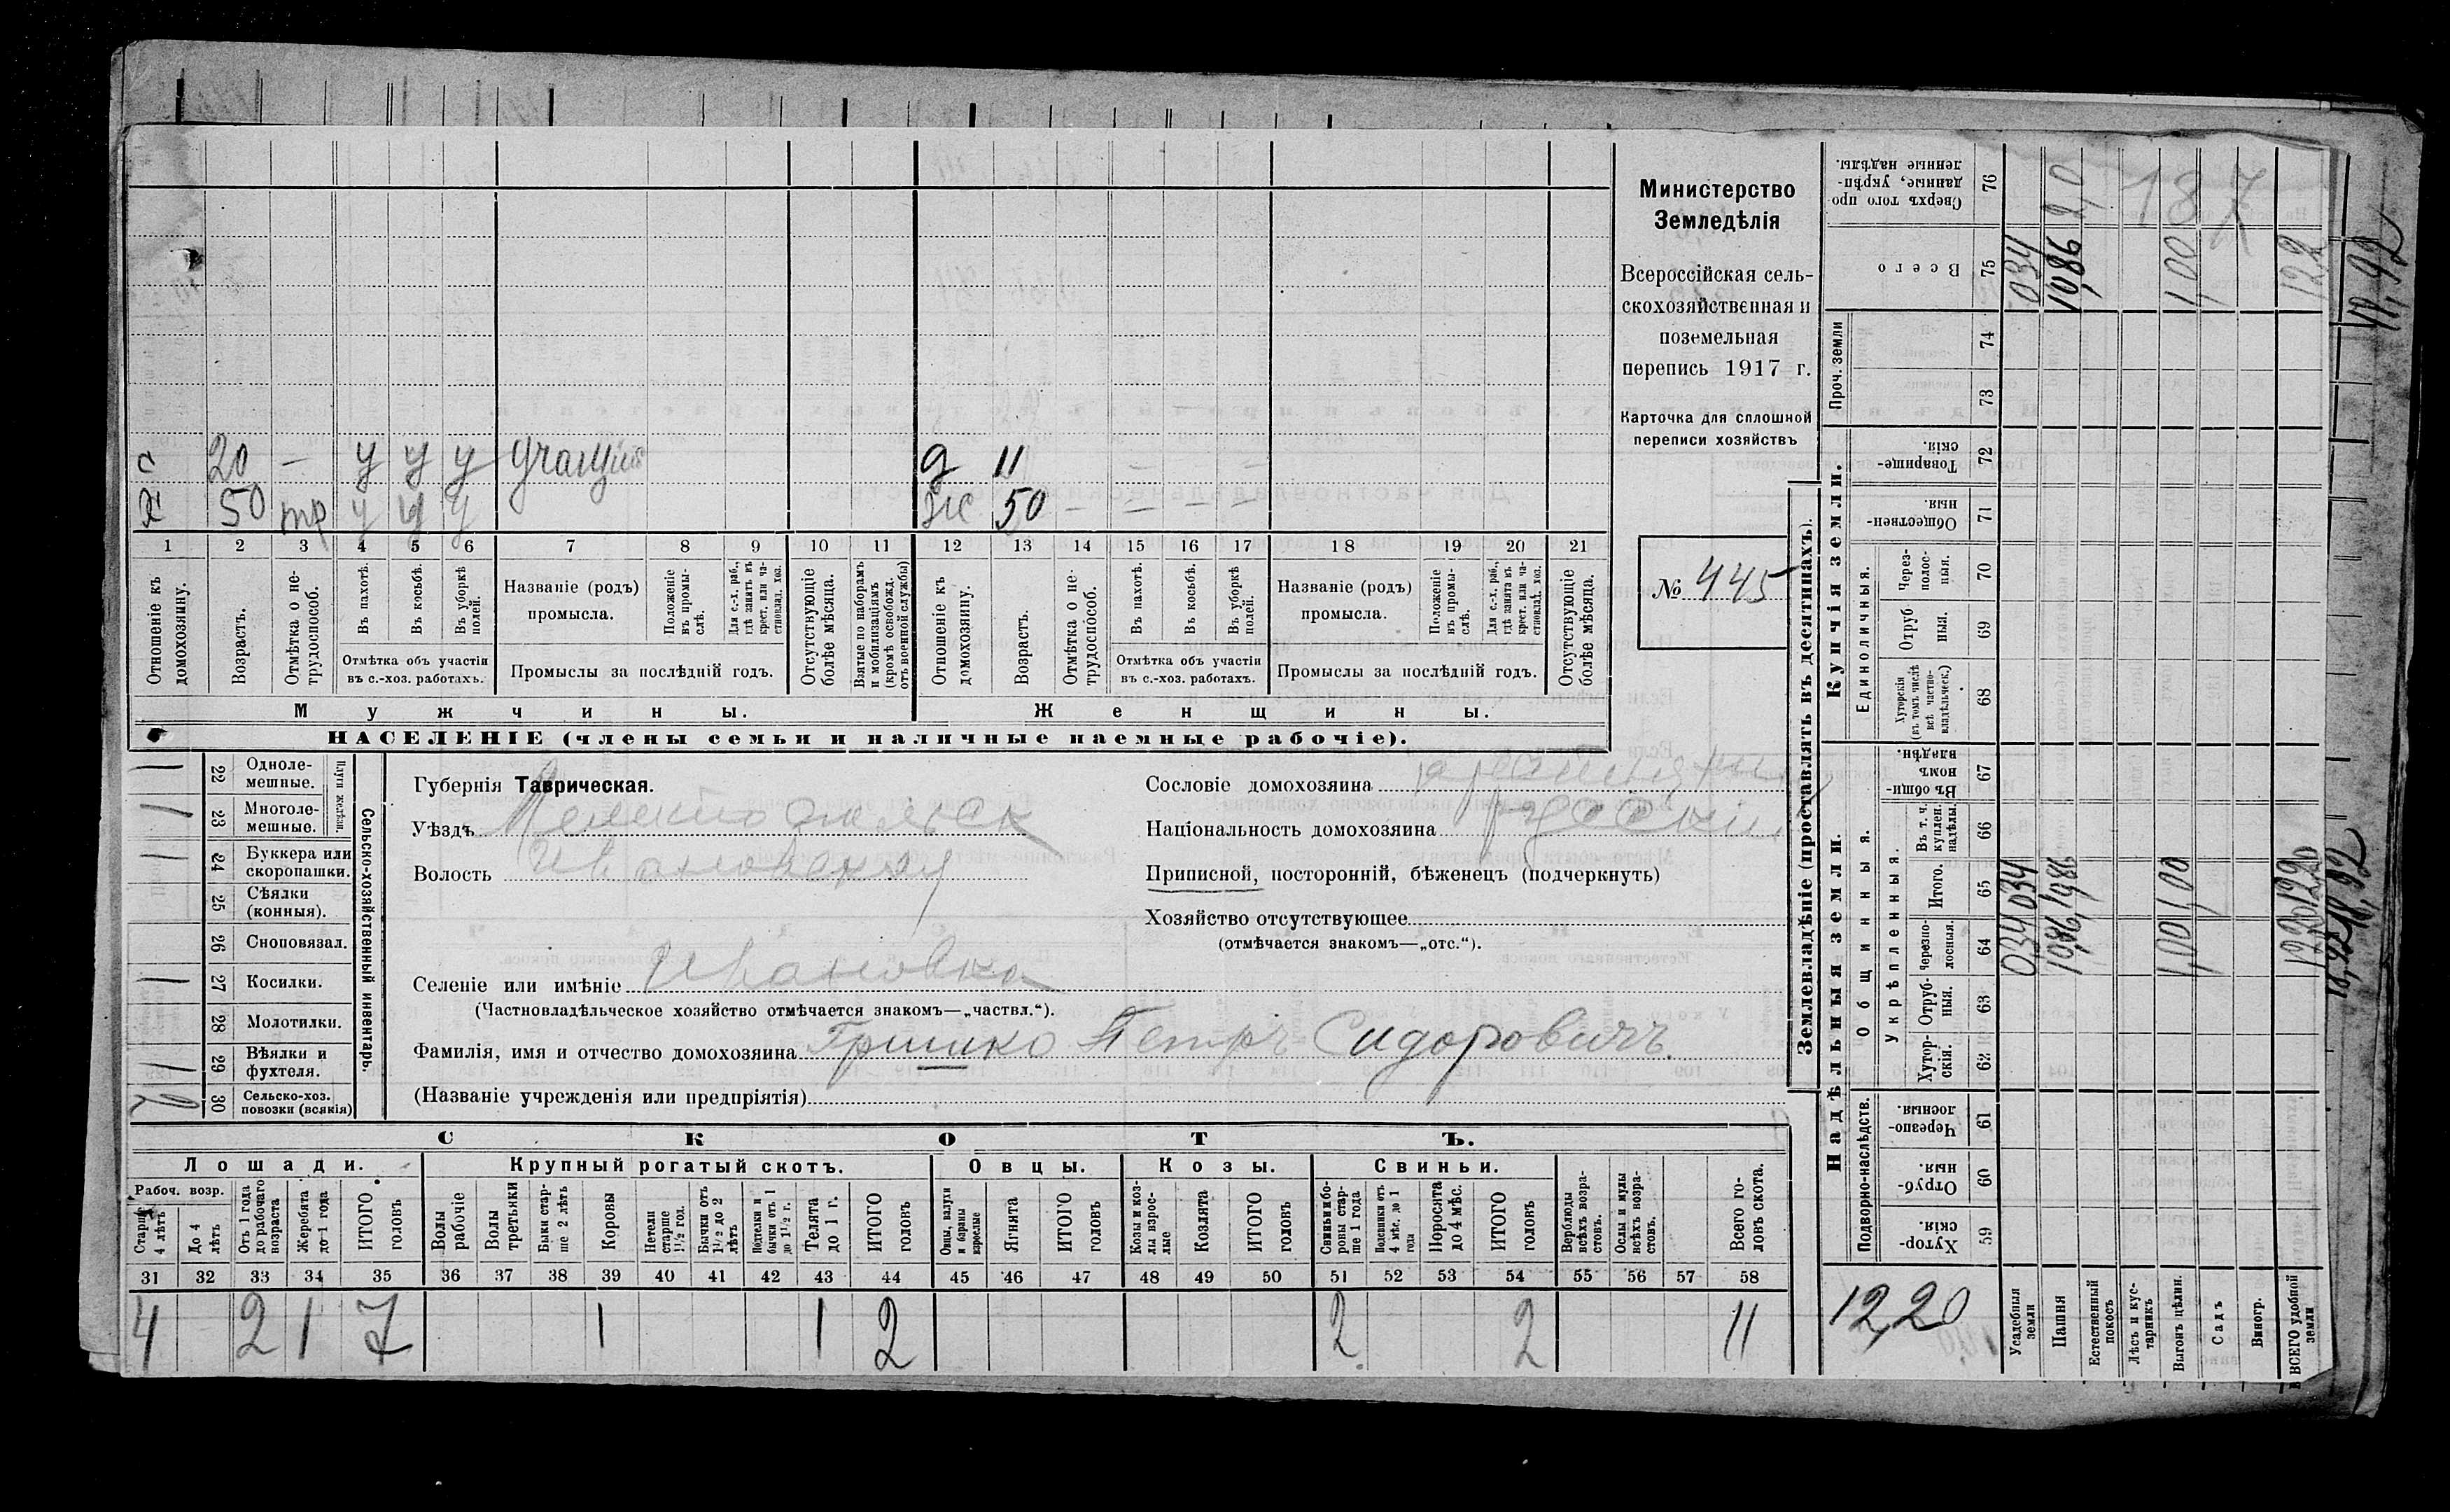 Министерство
Земледѣлія
Всероссійская сель-
скохозяйственная и
поземельная
перепись 1917 г.
Карточка для сплошной
переписи хозяйствъ
№ 445
с 20 — у у у
д 11
х 50 тр у у у
ж 50 — — — —
1 2 3 4 5 6 7 8 9 10 11 12 13 14 15 16 17 18 19 20 21
Отношеніе къ домохозяину.
Возрастъ.
Отмѣтка о не-трудоспособ.
Въ пахотѣ.
Въ косьбѣ.
Въ уборкѣ полей.
Отмѣтка объ участіи
въ с.-хоз. работахъ.
Названіе (родъ)
промысла.
Положеніе въ промы-слѣ.
Для с.-х. раб., гдѣ занятъ въ крест. или ча-стновлад. хоз.
Промыслы за послѣдній годъ.
Отсутствующіе болѣе мѣсяца.
Взятые по наборамъ и мобилизаціямъ (кромѣ освобожд. отъ военной службы)
Отношеніе къ домохозяину.
Возрастъ.
Отмѣтка о не-трудоспособ.
Въ пахотѣ.
Въ косьбѣ.
Въ уборкѣ полей.
Отмѣтка объ участіи
въ с.-хоз. работахъ.
Названіе (родъ)
промысла.
Положеніе въ промы-слѣ.
Для с.-х. раб., гдѣ занята въ крест. или ча-стновлад. хоз.
Промыслы за послѣдній годъ.
Отсутствующіе болѣе мѣсяца.
Мужчины.
Женщины.
НАСЕЛЕНІЕ (члены семьи и наличные наемные рабочіе).
Сельско-хозяйственный инвентарь.
Плуги желѣзн.
1 22 Одноле-мешные.
1 23 Многоле-мешные.
1 24 Буккера или скоропашки.
25 Сѣялки (конныя).
26 Сноповязал.
1 27 Косилки.
28 Молотилки.
1 29 Вѣялки и фухтеля.
30 Сельско-хоз. повозки (всякія)
Губернія Таврическая.
Уѣздъ Мелитопольск
Волость Ивановская
Селеніе или имѣніе Ивановка
(Частновладѣльческое хозяйство отмѣчается знакомъ—„частвл.“).
Фамилія, имя и отчество домохозяина Гришко Петръ Сидоровичъ
(Названіе учрежденія или предпріятія)
Сословіе домохозяина
Національность домохозяина русскій
Приписной, посторонній, бѣженецъ (подчеркнуть)
Хозяйство отсутствующее
(отмѣчается знакомъ—„отс.“).
СКОТЪ.
Лошади.
Крупный рогатый скотъ.
Овцы.
Козы.
Свиньи.
Рабоч. возр.
Старше 4 лѣтъ
До 4 лѣтъ
Отъ 1 года до рабочаго возраста
Жеребята до 1 года
ИТОГО головъ
Волы рабочіе
Волы третьяки
Быки стар-ше 2 лѣтъ
Коровы
Нетели старше 1½ год.
Бычки отъ 1½ до 2 лѣтъ
Подтелки и бычки отъ 1 до 1½ г.
Телята до 1 г.
ИТОГО головъ
Овцы, валухи и бараны взрослые
Ягнята
ИТОГО головъ
Козы и коз-лы взрос-лые
Козлята
ИТОГО головъ
Свиньи и бо-ровы стар-ше 1 года
Подсвинки отъ 4 мѣс. до 1 года
Поросята до 4 мѣс.
ИТОГО головъ
Верблюды всѣхъ возра-стовъ.
Ослы и мулы всѣхъ возра-стовъ.
Всего го-ловъ скота.
31 32 33 34 35 36 37 38 39 40 41 42 43 44 45 46 47 48 49 50 51 52 53 54 55 56 57 58
4 2 1 7 1 1 2 2 2 11
Землевладѣніе (проставлять въ десятинахъ).
Надѣльныя земли.
Купчія земли.
Проч. земли
Подворно-наслѣдств.
Общинныя.
Укрѣпленныя.
Единоличныя.
Хутор-скія. 59
Отруб-ныя. 60
Черезпо-лосныя. 61
Хутор-скія. 62
Отруб-ныя. 63
Черезпо-лосныя. 64
Итого. 65
Въ т. ч. куплен. надѣлы. 66
Въ общин-номъ владѣн. 67
Хуторскія (въ томъ числѣ всѣ частно-владѣльческ.) 68
Отруб ныя. 69
Через-полос-ныя. 70
Обществен-ныя. 71
Товарище-скія. 72
73
74
Всего 75
Сверхъ того про данные, укрѣп-ленные надѣлы. 76
12,20
Усадебныя земли 0,34 034 034
Пашня 10,86 10,86 10,86 2,0
Естественный покосъ
Лѣсъ и кус-тарникъ
Выгонъ цѣлин. 1,00 1,00 1,00
Садъ
Виногр.
ВСЕГО удобной земли 12,20 12,20 122
187